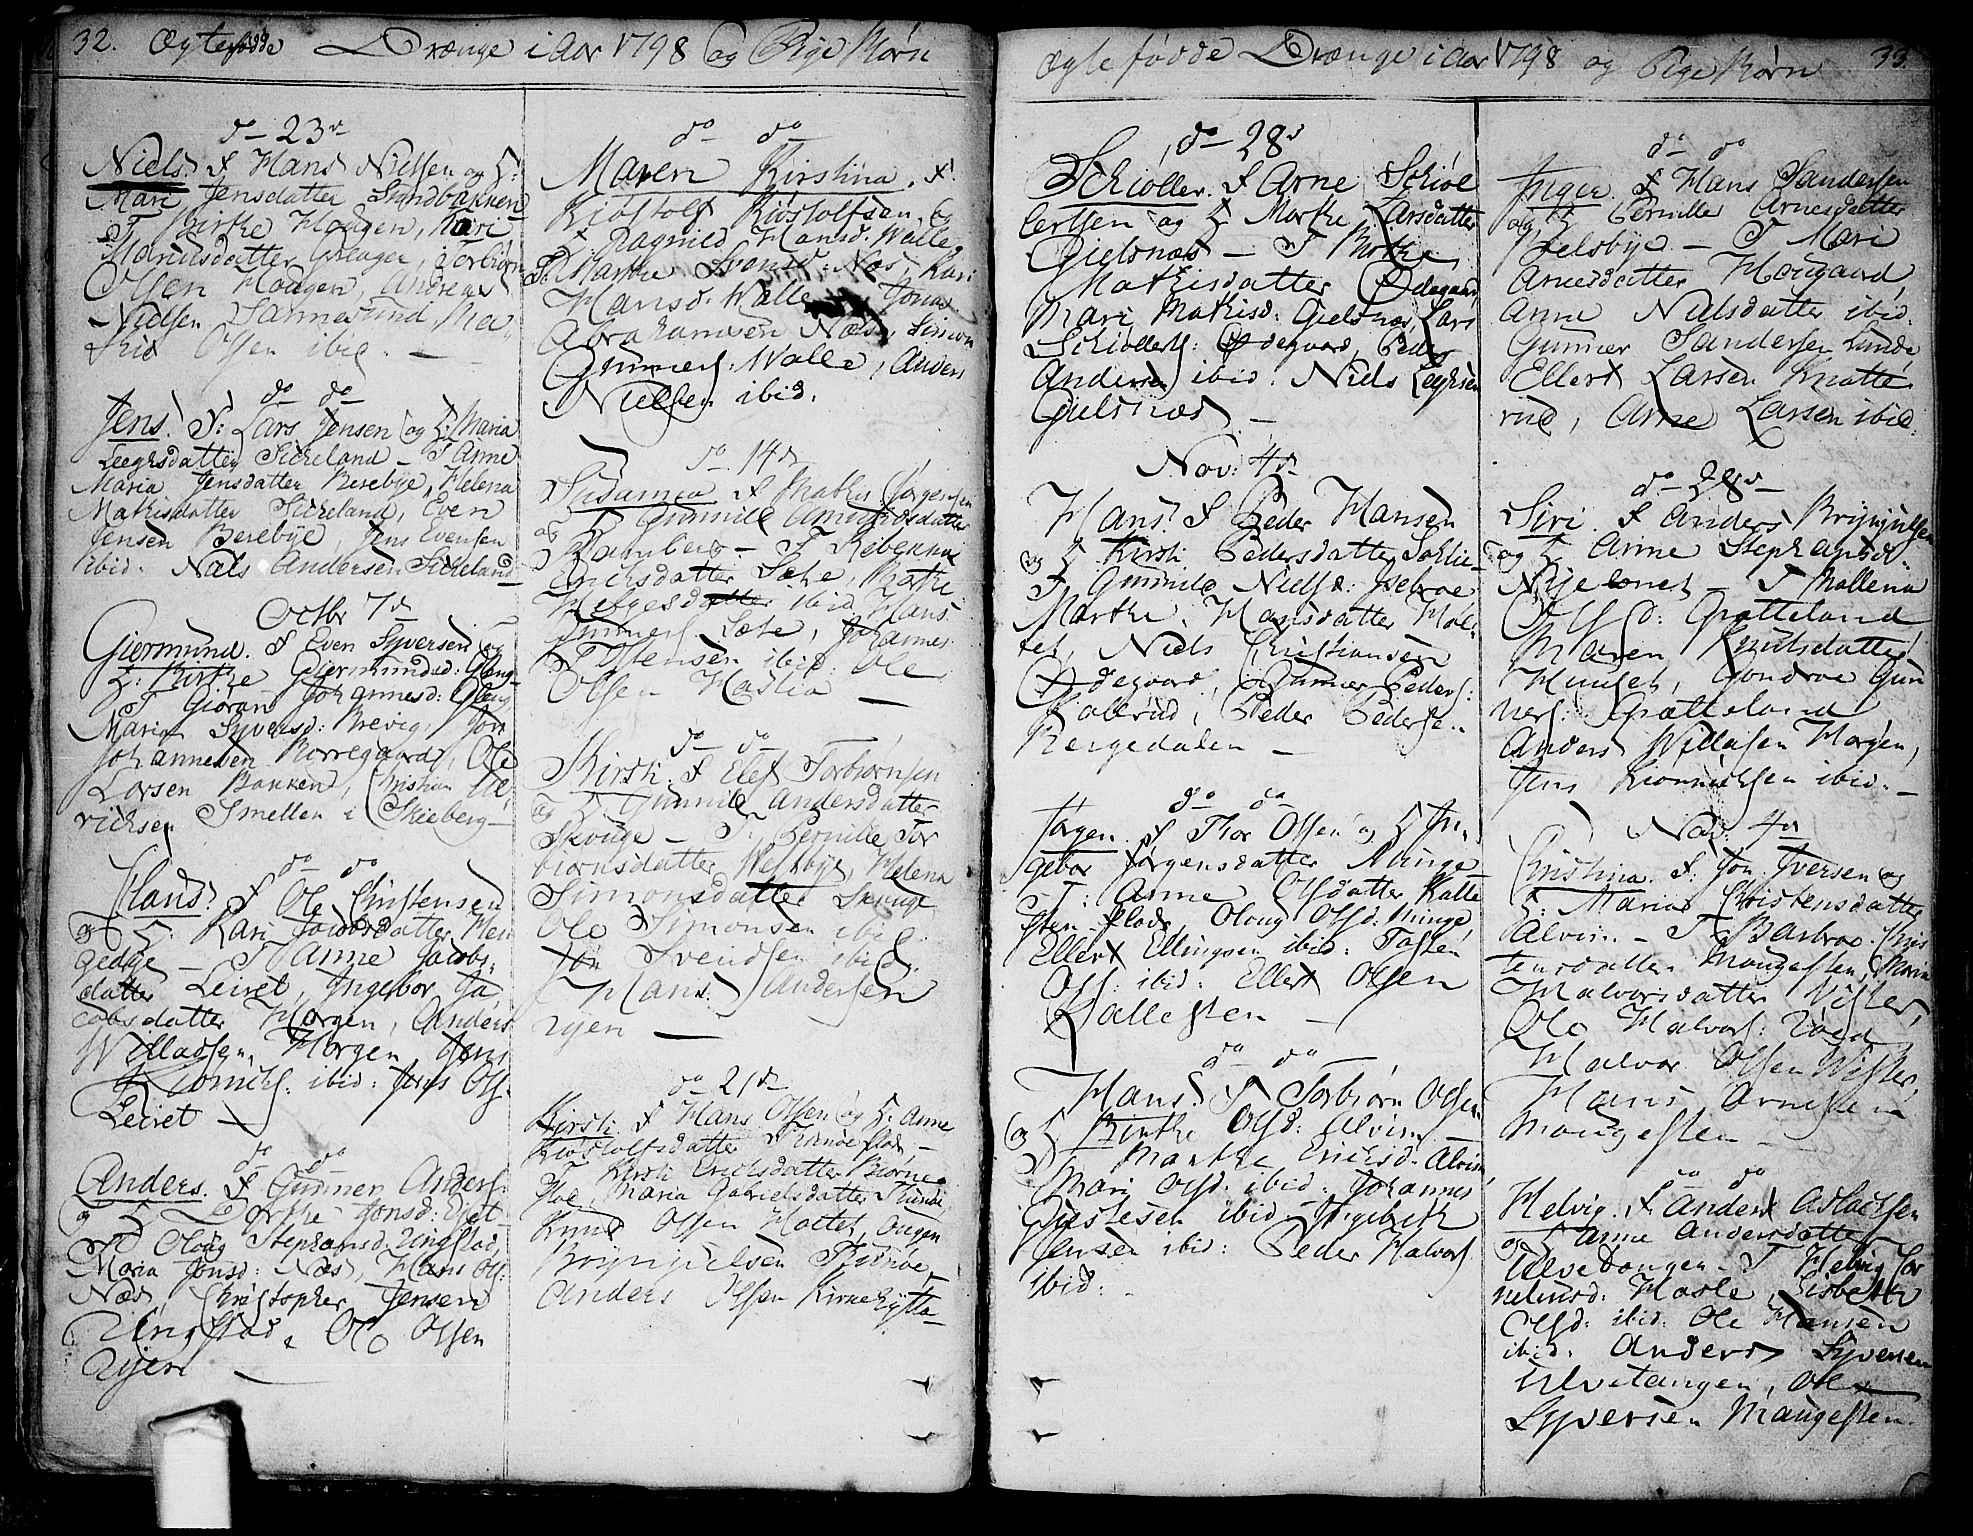 32. Ægtefødde Drænge i Aar 1798 og Pige Børn
do 23d
Niels. F Hans Nielsen og H:
Mari Jensdatter Sandbakken
T Birthe Hougen, Kari
Mandrsdatter Torbiørn
Olsen Hougen, Andreas
Nielsen Sannesund, Ma-
Olsen ibid. —
do do
Jens. F: Lars Jensen og H: Maria
Leegesdatter Sikeland — T Anne
Maria Jensdatter Berebye, Helena
Mathisdatter Sikeland, Even
Jensen Berebye, Jens Evensen
ibid. Niels Andersen Sikeland
Octbr 7d
Giermund. F Even Syversen og
H: Birthe Giermundsd: Gleng
T Gioran Johannesd: Gleng
Maria Syversd: Brevig, Jon
Johannesen Borregaard, Ole
Larsen Bakken, Christian He-
richsen Smellen i Skieberg —
do do
Hans. F Ole Christensen
og H: Kari Jacobsdatter Men
gedge — T Anne Jacobs-
datter Leiret, Ingebor Ja-
cobsdatter Horgen, Anders
Willadsen Horgen, Jens
Kionichs: ibid: Jens Ols:
Leiret —
do do
Anders. F Gunner Anders:
og H Dorthe Jonsd:
T Oloug Stephansd: Ungstad,
Maria Jonsd: Næs, Hans Ols:
Næs, Christopher Jensen
Ungstad, Ole Olsen
Ryen —
do do
Maren Kirstina. F
Kiøstolf Kiøstolfsen, og
H: Ragnild Hansd: Walle,
T: Marthe Svensd: Næs, Kari
Hansd: Walle, Jonas
Abrahamsen Næss, Simon
Gunners: Walle, Anders
Nielsen ibid.
do 14d
Susanna F Mathis Jørgensen
og H Gunnild Amundsdatter
Ramberg — T Rebekka
Erichsdatter Sæte, Birthe
Helgesdatter ibid Hans
Gunners: Sæte, Johannes
Tostensen ibid Ole
Olsen Haslie —
do do
Kirsti. F Elef Torbiørnsen
og H Gunnild Andersdatter
Skouge — T: Pernille Tor
biørnsdatter Wessbye, Helena
Simonsdatter Skouge
Ole Simonsen ibid.
Jon Svendsen ibid.
Hans Andersen
Ryen —
do 21d
Kirsti. F Hans Olsen og H: Anne
Kiøstolfsdatter —
T Kirsti Erichsdatter Biørne-
Maria Gabrielsdatter Thune,
Knud Olsen Holtet, Jørgen
Brynjulsen
Anders Olsen Kirkehytta —
Ægtefødde Drænge i Aar 1798 og Pige Børn 33.
do 28d
Schiøller. F Arne Schiøl
lersen og H Marthe Larsdatter
Gielsnæs — T Birthe
Mathisdatter Ødegaard
Mari Mathisd: Gielsnæs, Lars
Schiøllers: Ødegaard, Peder
Andersen ibid. Niels Leegesen
Gielsnæs —
Nov: 4d
Hans. F Peder Hansen
og H Kirsti Pedersdatter Sollie
T Gunnild Nielsd: Isebroe
Marthe Hansdatter Hol-
tet, Niels Christiansen
Ødegaard, Gunner Peders:
Kallerud, Peder Pedersen
Bergedalen —
do do
Jørgen. F Thor Olsen og H In-
gebor Jørgensdatter Minge
T: Anne Olsdatter Kalle
sten-Flad, Oloug Olsd: Minge,
Ellert Ellingsen ibid: Tosten
Ols: ibid: Ellert Olsen
Kallesten —
do do
Hans. F Torbiørn Olsen
og H Birthe Olsd: Alvim —
T Marthe Ericksd: Alvim
Mari Olsd: ibid: Johannes
Giestesen ibid. Ingebreth
Jensen ibid: Peder Halvors:
ibid:
do do
Inger. F Hans Sandersen
og H Pernille Arnesdatter
Delebye — T Mari
Arnesdatter Hougaard,
Anne Nielsdatter ibid.
Gunner Sandersen Lunde
Ellert Larsen Knatte-
rud, Arne Larsen ibid:
do 28d
Siri. F Anders Brynjulsen
og H Anne Stephansd:
Nye — T Mallena
Olsd: Grotteland
Maren Knudsdatter
Hunset, Gun
ners: Grotteland
Anders Willasen Horgen,
Jens Kionnichsen ibid. —
Nov: 4d
Christina. F: Jon Iversen og
H: Maria Christensdatter
Alvim — T Barbroe Chris
tensdatter Mougesten, Maria
Halvorsdatter Wister,
Ole Halvors: Røed
Halvor Olsen Wister,
Hans Arnesen
Mougesten —
do do
Helvig. F Anders Aslachsen
og H Anne Andersdatter
Ulvetangen — T Helvig Cor
neliusd: Hasle, Lisbeth
Olsd: ibid: Ole Hansen
ibid. Anders Syversen
Ulvetangen, Ole
Syversen Mougesten.